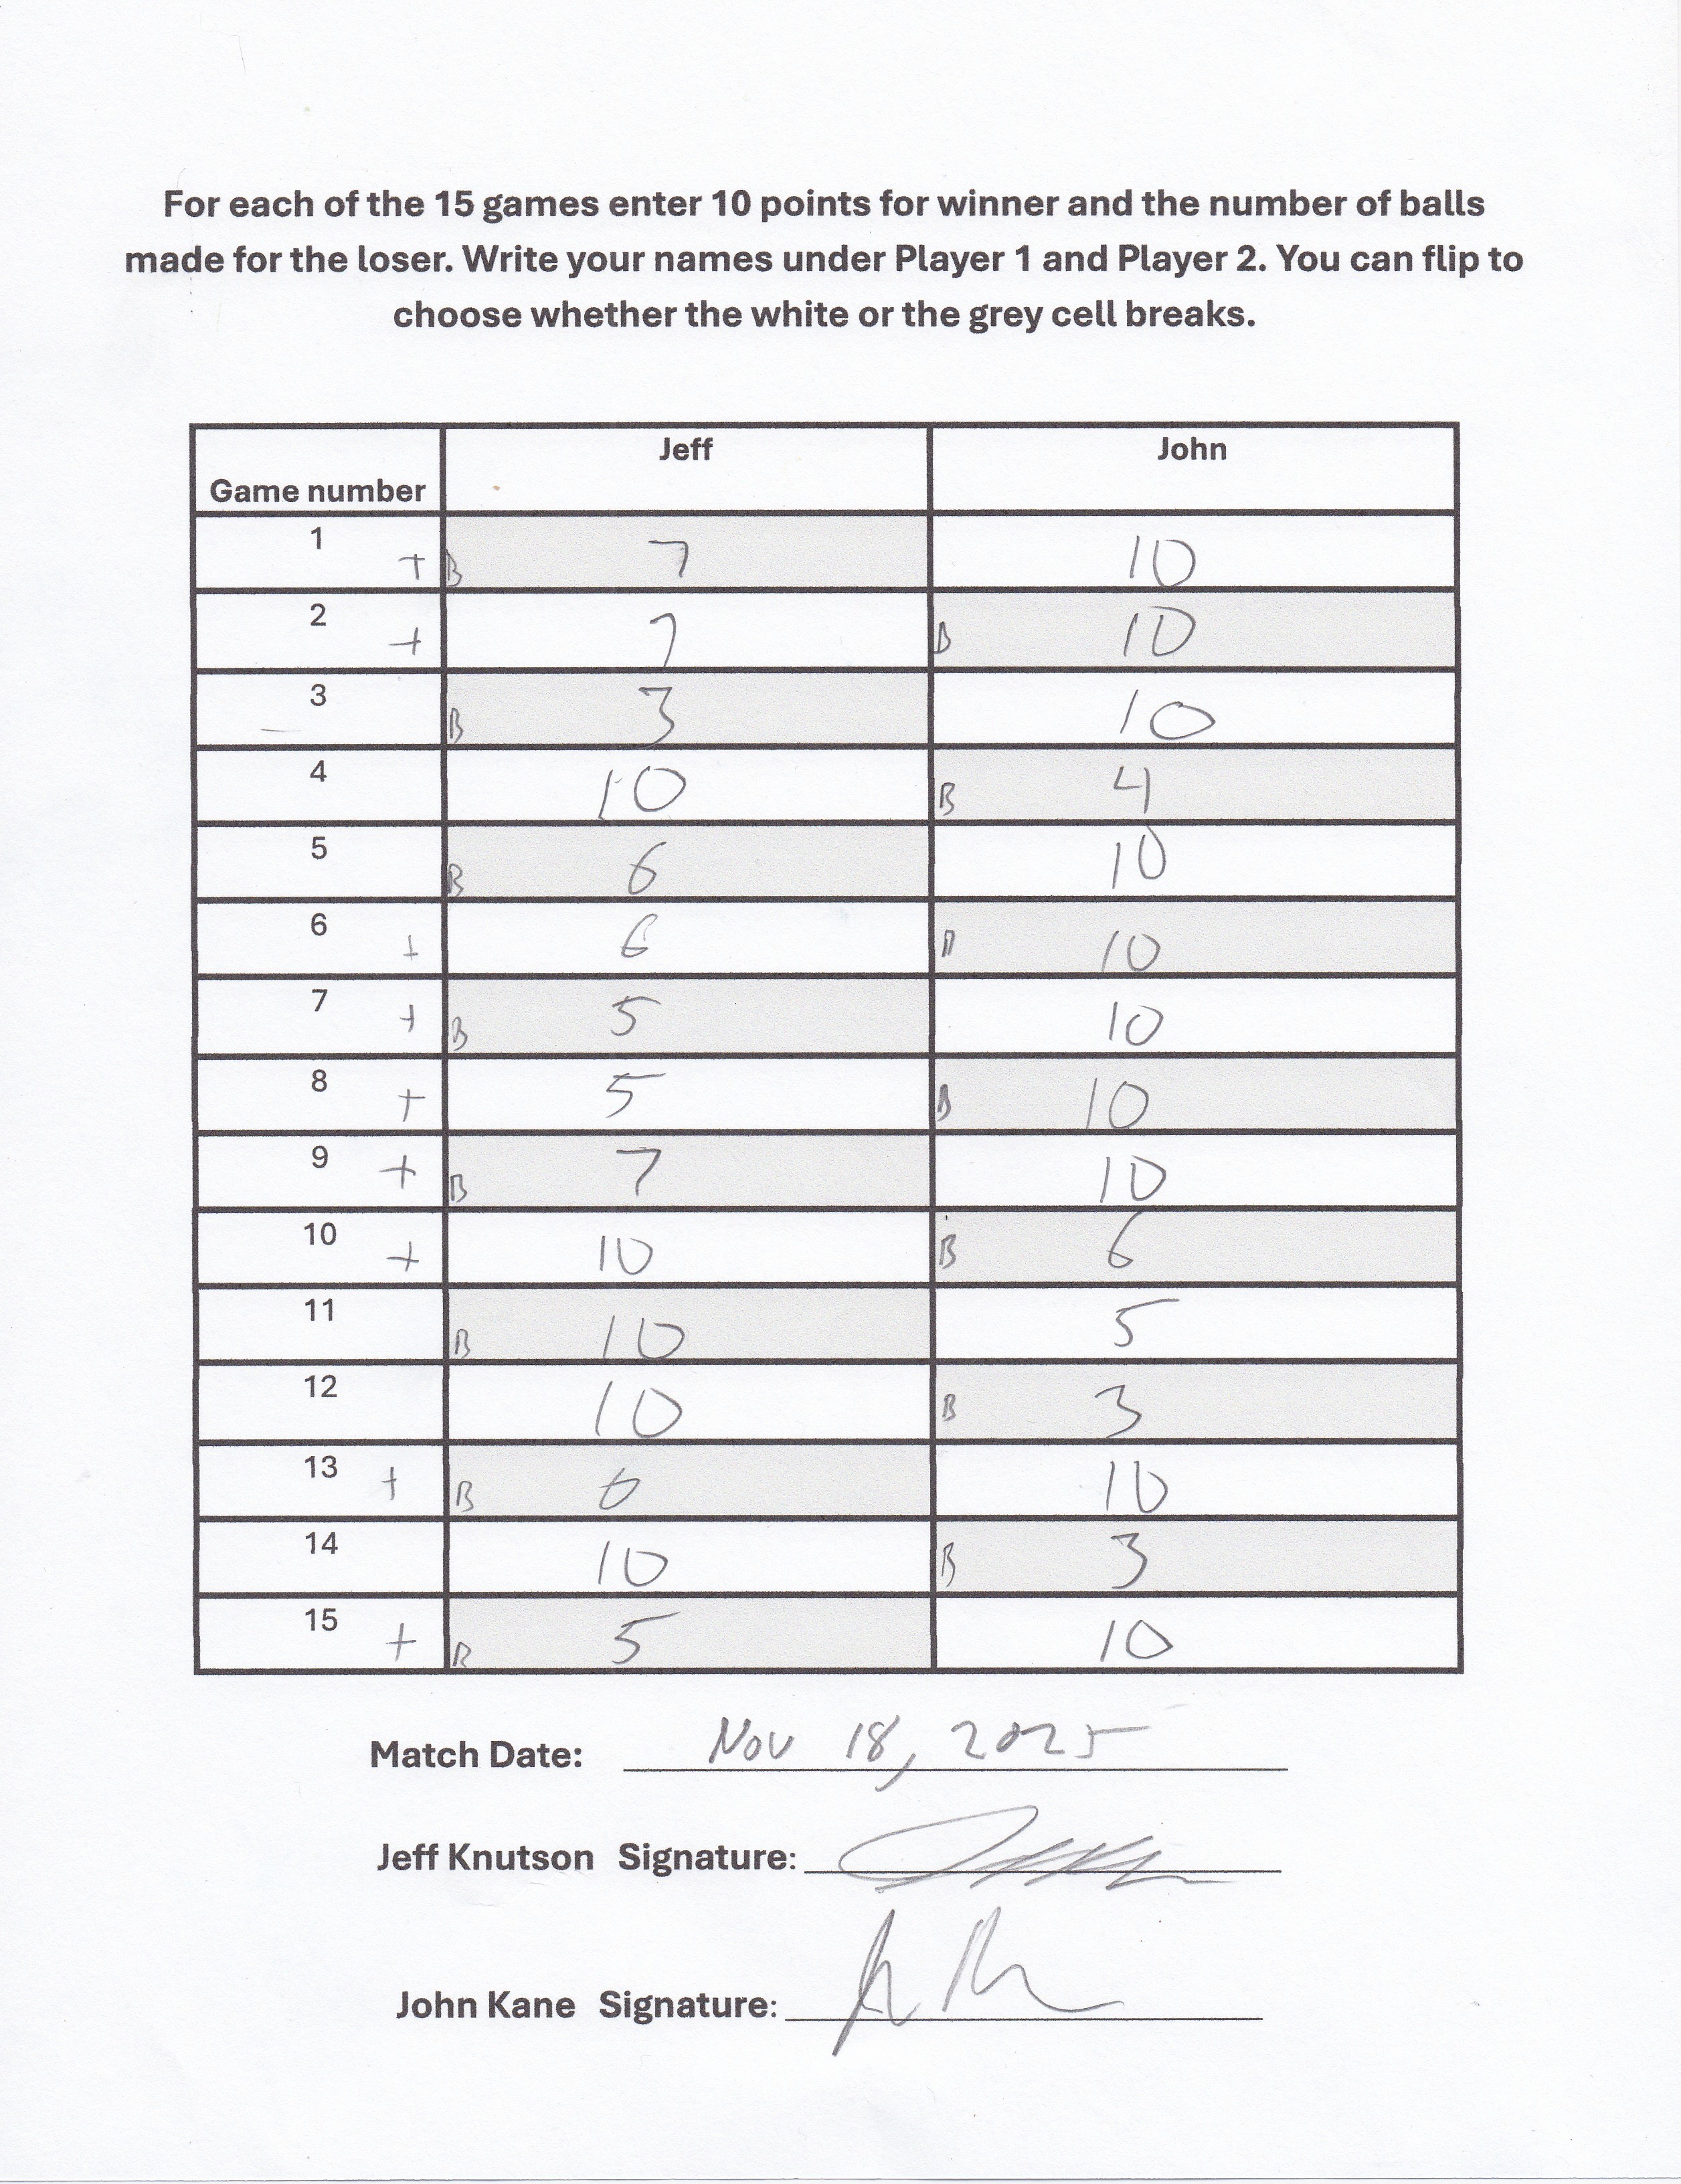 For each of the 15 games enter 10 points for winner and the number of balls
made for the loser. Write your names under Player 1 and Player 2. You can flip to
choose whether the white or the grey cell breaks.
Game number Jeff John
1 + B 7 10
2 + 7 B 10
3 — B 3 10
4 10 B 4
5 B 6 10
6 + 6 B 10
7 + B 5 10
8 + 5 B 10
9 + B 7 10
10 + 10 B 6
11 B 10 5
12 10 B 3
13 + B 6 10
14 10 B 3
15 + B 5 10
Match Date: Nov 18, 2025
Jeff Knutson Signature:
John Kane Signature: